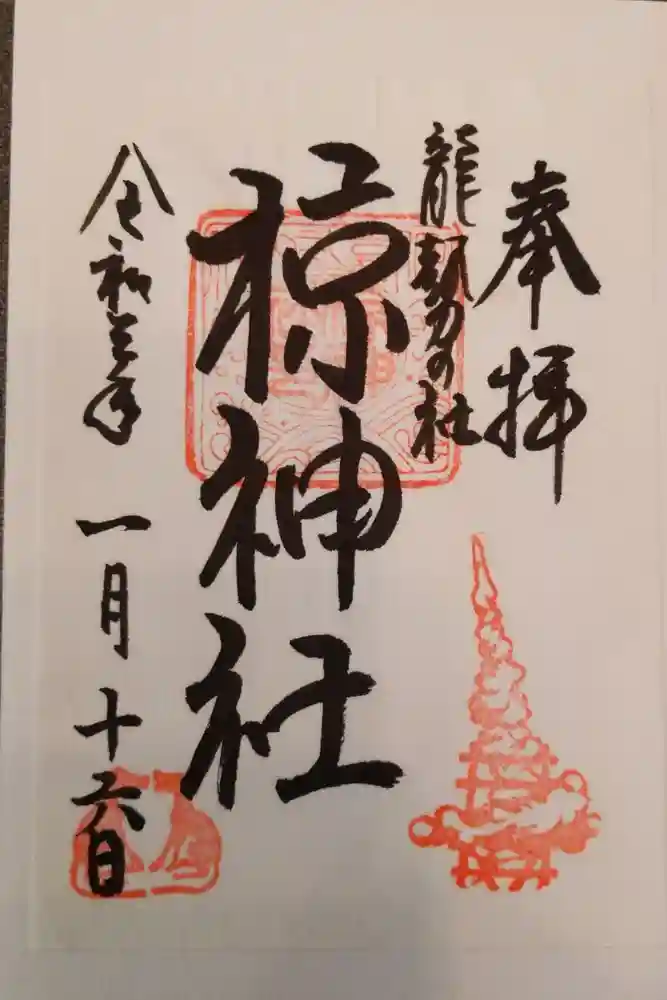 奉拝
龍勢の社
椋神社
令和三年
一月十六日